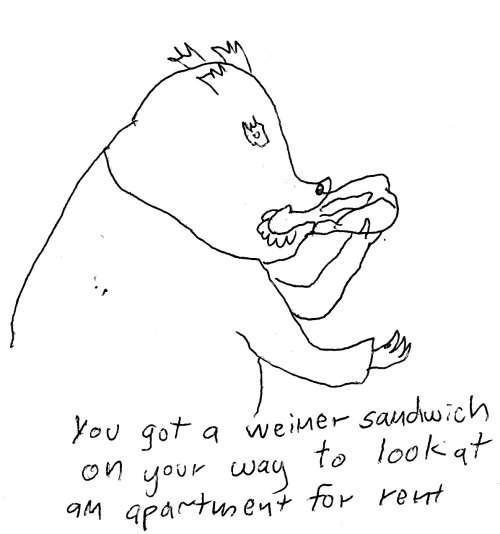 You got a weiner sandwich
on your way to look at
an apartment for rent